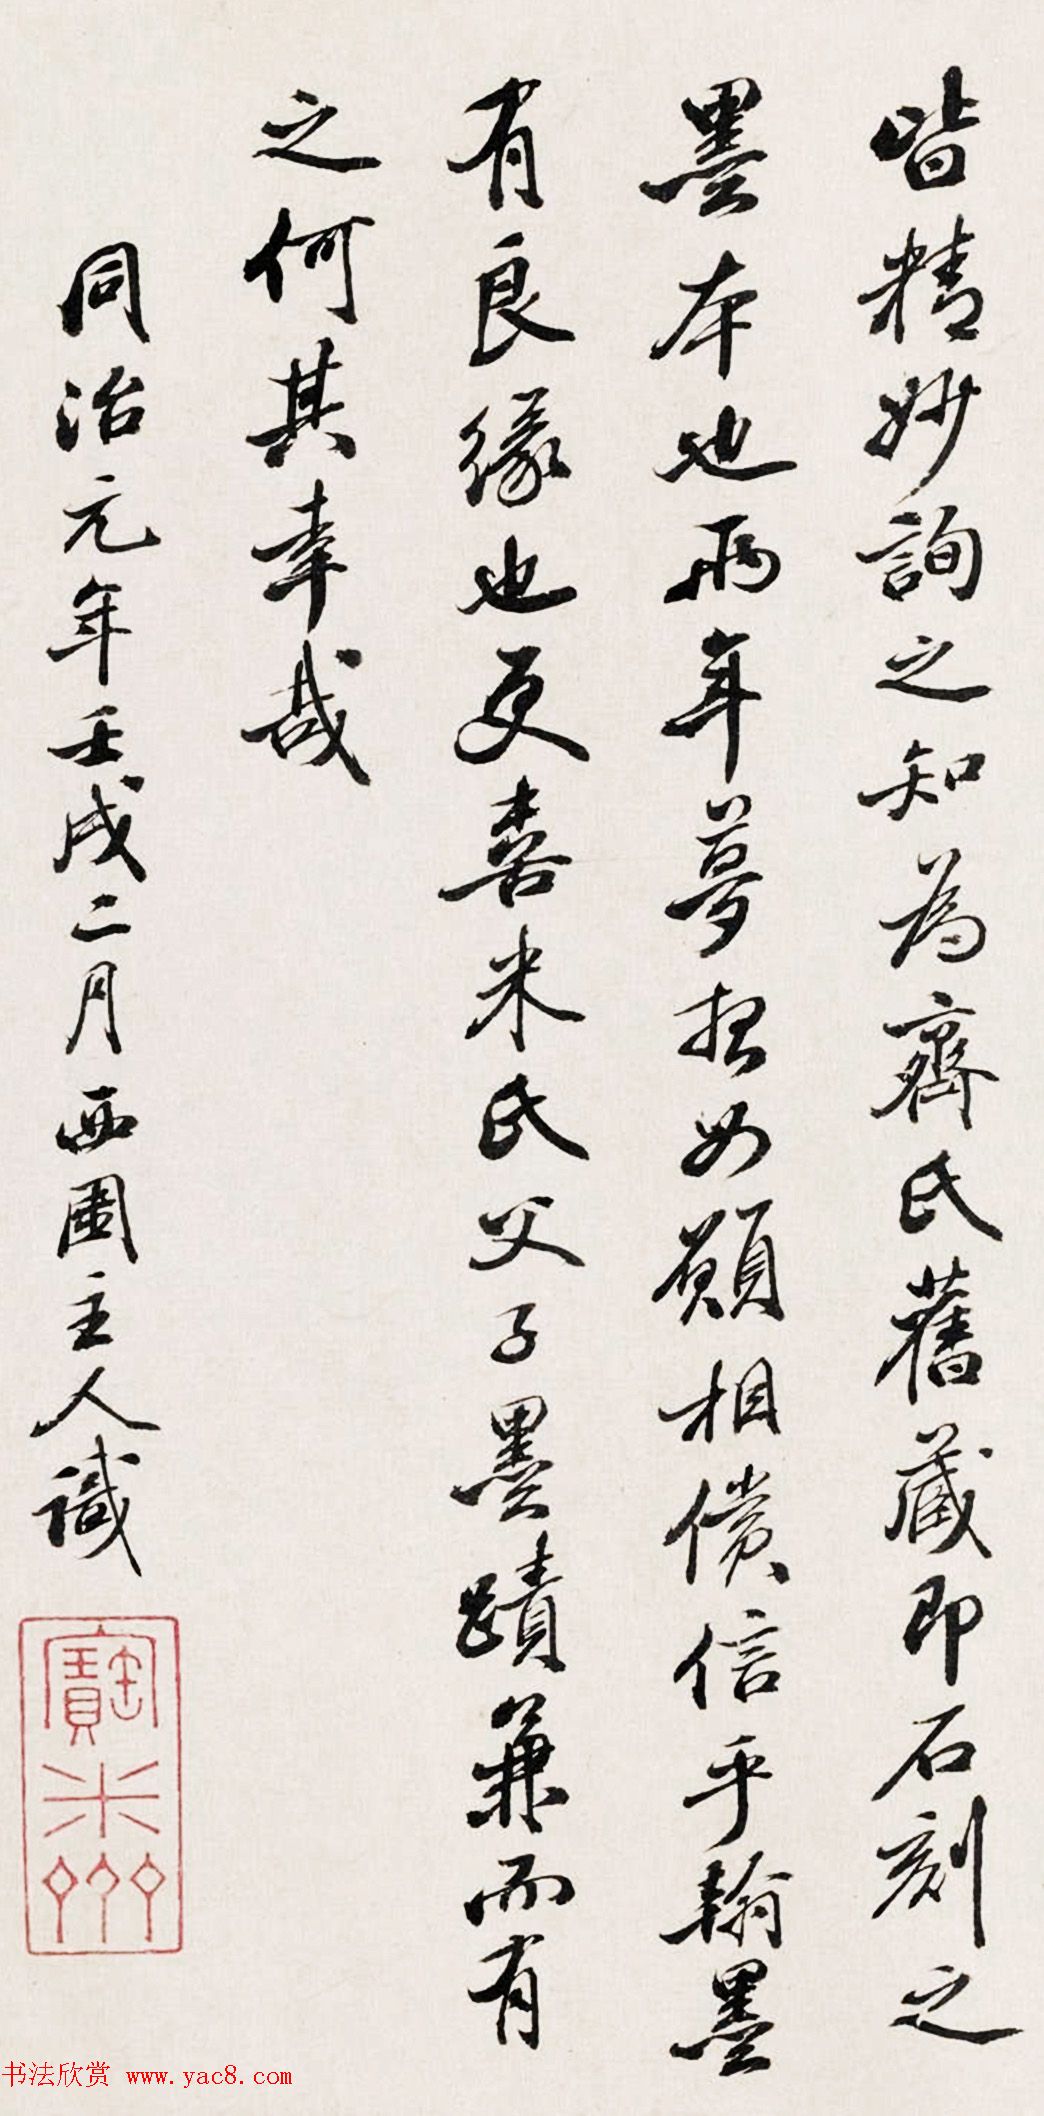 皆精妙詢之知為齊氏舊藏即石刻之
墨本也兩年夢想如願相償信乎翰墨
有良緣也更喜米氏父子墨蹟兼而有
之何其幸哉
同治元年壬戌二月西園主人識
寶米
书法欣赏 www.yac8.com